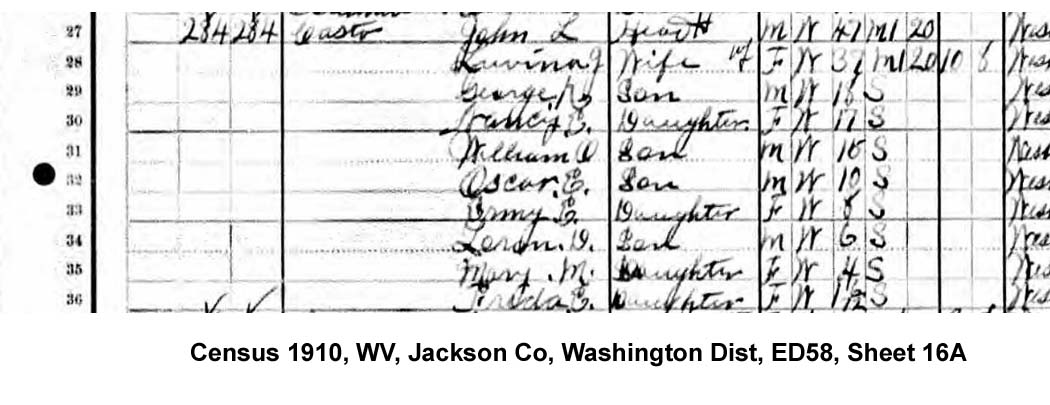 27 284 284 Casto John L Head M W 47 M1 20
28 Luvina J Wife F W 37 M1 20 10 8
29 George Son M W 18 S
30 Nancy E. Daughter F W 17 S
31 William O Son M W S
32 Oscar E. Son M W 10 S
33 E. Daughter F W 8 S
34 D. Son M W 6 S
35 Mary M. Daughter F W 4 S
36 Freda E. Daughter F W S
Census 1910, WV, Jackson Co, Washington Dist, ED58, Sheet 16A